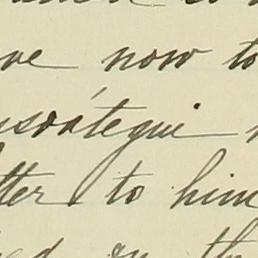 ve now to
usoátegui
tter to him
ed on the